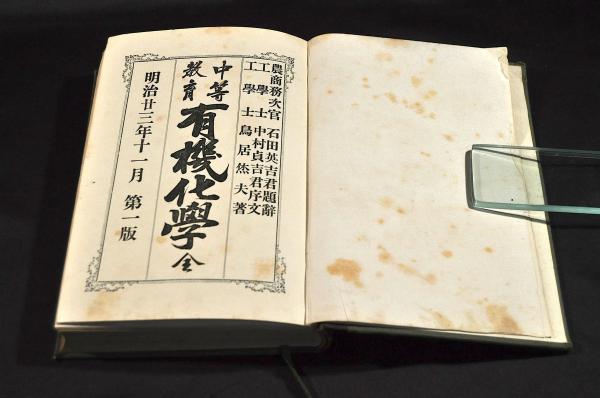 農商務次官 石田英吉君題辭
工學士 中村貞吉君序文
工學士 鳥居烋夫著
中等
教育
有機化學 全
明治廿三年十一月 第一版